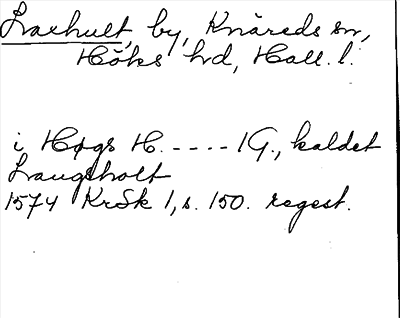 Laxhult, by, Knäreds sn,
Höks hd, Hall. l.
i Høgs H. ---- 1 G., kaldet
Laugsholt
1574 KrSk 1, s. 150. regest.